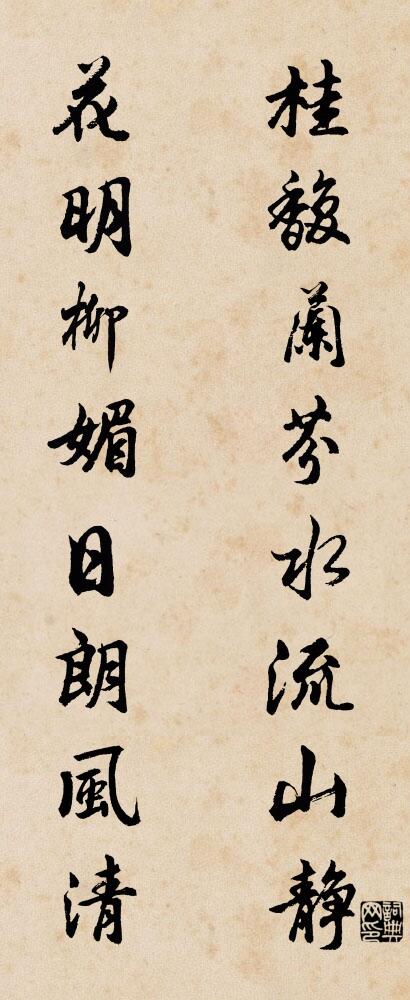 桂馥蘭芬水流山静
花明柳媚日朗風清
詞典网印